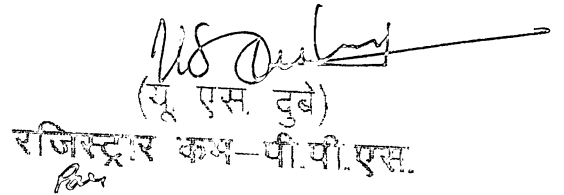 (यू. एस. दुबे)
रजिस्ट्रार कम-पी.पी.एस.